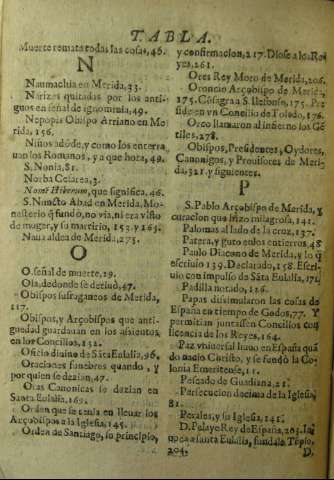 TABLA.
Muerte remata todas las cosas, 46.
N
Naumachia en Merida, 33.
Narizes quitadas por los anti-
guos en señal de ignominia, 49.
Nepopis Obispo Arriano en Me-
rida, 156.
Niños adóde, y como los enterra
uan los Romanos, y a que hora, 49.
S. Nonia, 81.
Norba Cesarea, 3.
que significa, 46.
S. Nuncto Abad en Merida. Mo-
nasterio q̃ fundó, no via, ni era visto
de muger, y su martirio, 152. y 163.
Naua aldea de Merida, 273.
O
O. señal de muerte, 29.
Ola, dedonde se deriuó, 47.
Obispos sufraganeos de Merida,
117.
Obispos, y Arçobispos que anti-
guedad guardauan en los assientos,
en los Concilios, 132.
Oficio diuino de Sãta Eulalia, 96.
Oraciones funebres quando, y
por quien se dezian, 47.
Oras Canonicas se dezian en
Santa Eulalia, 169.
Orden que se tenia en lleuar los
Arçobispos a la Iglesia, 145.
Orden de Santiago, su principio,
y confirmacion, 217. Diose a los Re-
yes, 261.
Ores Rey Moro de Merida, 206.
Oroncio Arçobispo de Merida,
175. Cõsagra a S. Ilefonso, 175. Pre
side en vn Concilio de Toledo, 176.
Orco llamaron al infierno los Gē-
tiles, 278.
Obispos, Presidentes, Oydores,
Canonigos, y Prouisores de Meri-
da, 321. y siguientes.
P
S. Pablo Arçobispo de Merida, y
curacion que hizo milagrosa, 141.
Palomas al lado de la cruz, 137.
Patera, y guto enlos entierros, 48
Paulo Diacono de Merida, y lo q̃
escriuio 139. Declarado, 158. Escri-
uio con impulso de Sãta Eulalia, 171
Padilla notado, 126.
Papas dissimularon las cosas de
España en tiempo de Godos, 77. Y
permitian juntassen Concilios con
licencia de los Reyes, 164.
Paz vniuersal huuo en España quã
do nacio Christo, y se fundò la Co-
lonia Emeritense, 11.
Pescado de Guadiana, 21.
Persecucion decima de la Iglesia,
81.
Perales, y su Iglesia, 141.
D. Pelayo Rey de España, 203. In-
uoca a santa Eulalia, fundale Tẽplo,
204. D.